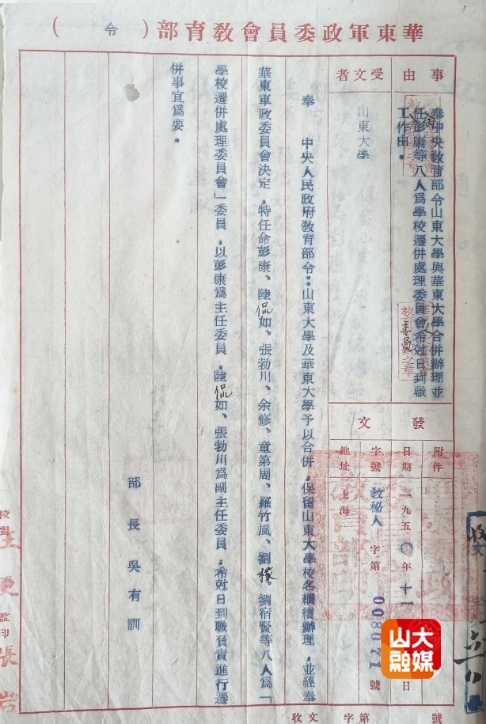 華東軍政委員會教育部（令）
事由
奉中央教育部令山東大學與華東大學合併辦理並
任彭康等八人爲學校遷併處理委員會委員希尅日到職
工作由.
受文者
山東大學
發文
附件
日期 一九五〇年十一 日
字號 教秘人 字第 008071 號
地址 上海
奉 中央人民政府教育部令：山東大學及華東大學予以合併，保留山東大學校名繼續辦理，並經奉
華東軍政委員會決定，特任命彭康、陸侃如、張勃川、余修、童第周、羅竹風、劉椽 劉宿賢等八人爲「
學校遷併處理委員會」委員，以彭康爲主任委員，陸侃如、張勃川爲副主任委員，希尅日到職負責進行遷
併事宜爲要。
部長 吳有訓
校對 監印 張岩
收文 字第 號
山大
融媒